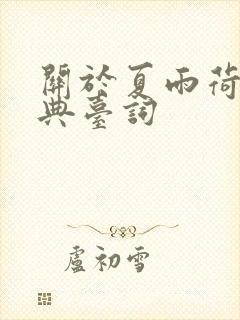 關於夏雨荷
典臺詞
盧初雪